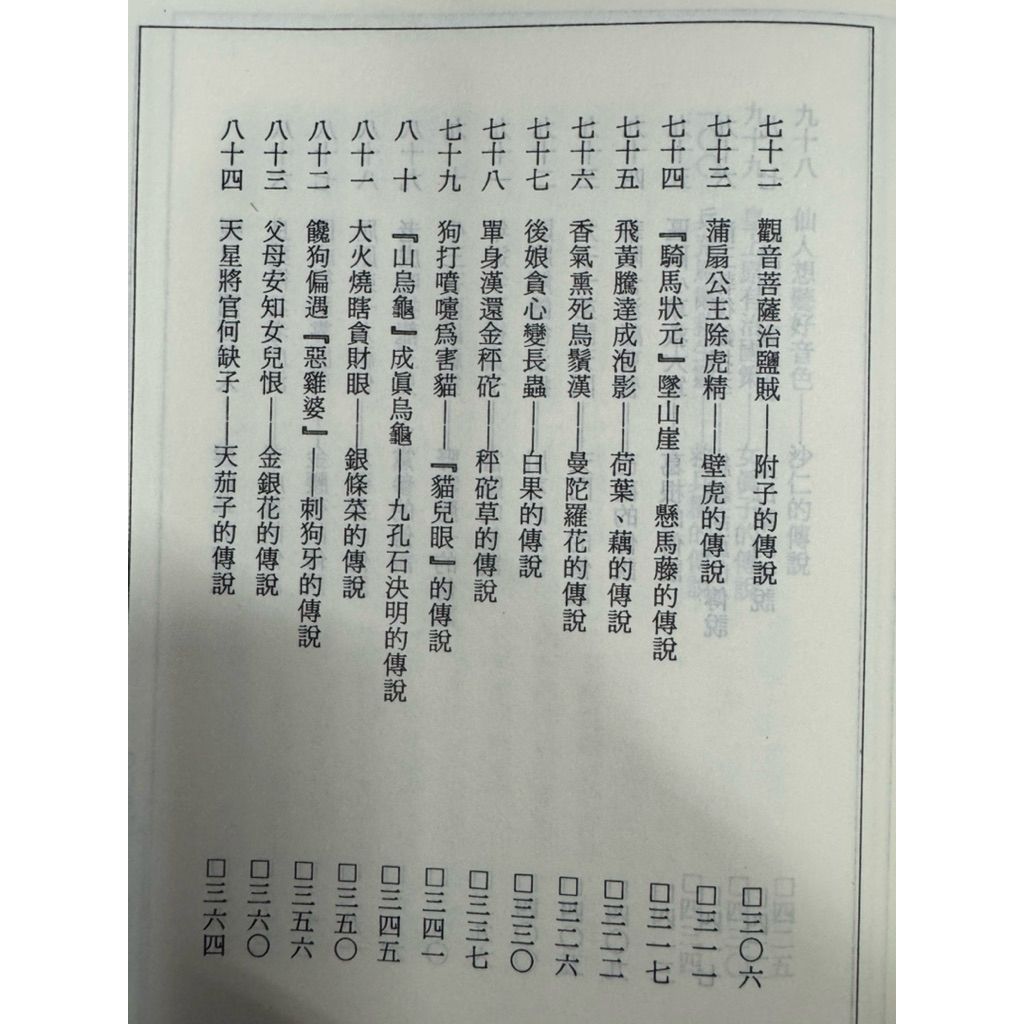 七十二　觀音菩薩治鹽賊——附子的傳說　□三〇六
七十三　蒲扇公主除虎精——壁虎的傳說　□三一一
七十四　『騎馬狀元』墜山崖——懸馬藤的傳說　□三一七
七十五　飛黃騰達成泡影——荷葉、藕的傳說　□三二二
七十六　香氣熏死烏鬚漢——曼陀羅花的傳說　□三二六
七十七　後娘貪心變長蟲——白果的傳說　□三三〇
七十八　單身漢還金秤砣——秤砣草的傳說　□三三七
七十九　狗打噴嚏爲害貓——『貓兒眼』的傳說　□三四一
八十　『山烏龜』成眞烏龜——九孔石決明的傳說　□三四五
八十一　大火燒瞎貪財眼——銀條菜的傳說　□三五〇
八十二　饞狗偏遇『惡雞婆』——刺狗牙的傳說　□三五六
八十三　父母安知女兒恨——金銀花的傳說　□三六〇
八十四　天星將官何缺子——天茄子的傳說　□三六四
九十八　仙人想聽好音色——沙仁的傳說　□四二五